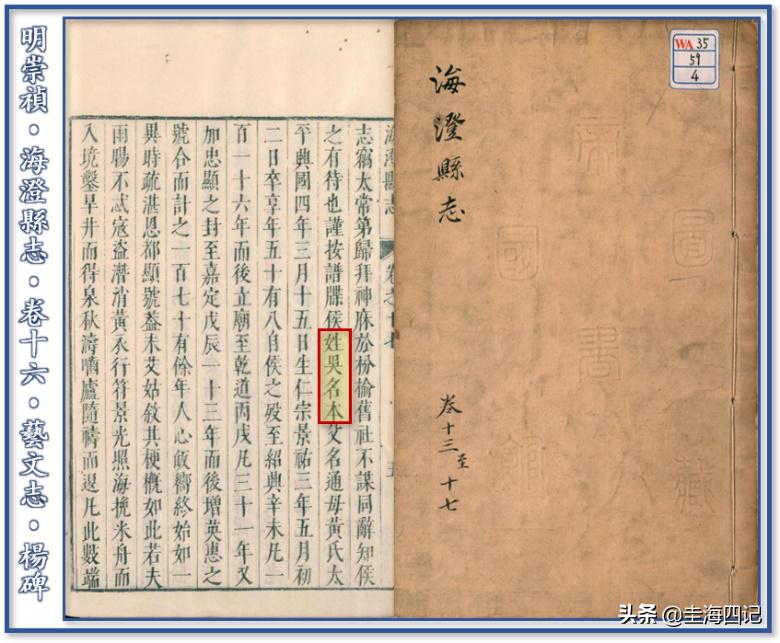 明崇禎·海澄縣志·卷十六·藝文志·楊碑
WA 35
59
4
海澄縣志
卷十三至十七
海澄縣志 卷之十七
志竊太常第歸拜神庥於枌榆舊社不謀同辭知侯
之有待也謹按譜牒侯姓吳名本父名通母黃氏太
平興國四年三月十五日生仁宗景祐三年五月初
二日卒享年五十有八自侯之歿至紹興辛未凡一
百一十六年而後立廟至乾道丙戌凡三十一年又
加忠顯之封至嘉定戊辰一十三年而後增英惠之
號合而計之一百七十有餘年人心皈嚮終始如一
異時疏湛恩都顯號蓋未艾姑敘其梗概如此若夫
雨暘不忒寇盜潛消黃衣行符景光照海挽米舟而
入境鑿旱井而得泉秋濤嚙廬隨禱而退凡此數端
头条 @圭海四记